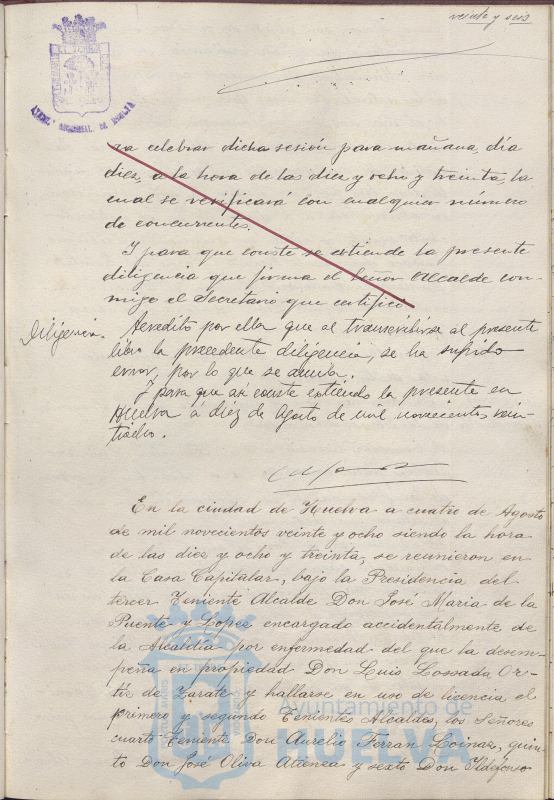 veinte y seis
ra celebrar dicha sesión para mañana, día
diez, a la hora de las diez y ocho y treinta, la
cual se verificará con cualquier número
de concurrentes.
Y para que conste se extiende la presente
diligencia que firma el Señor Alcalde con-
migo el Secretario que certifico
Diligencia.
Acredito por ella que al transcribirse al presente
libro la precedente diligencia, se ha sufrido
error, por lo que se anula.
Y para que así conste extiendo la presente en
Huelva a diez de Agosto de mil novecientos vein-
tiocho.
En la ciudad de Huelva a cuatro de Agosto
de mil novecientos veinte y ocho siendo la hora
de las diez y ocho y treinta, se reunieron en
la Casa Capitular, bajo la Presidencia del
tercer Teniente Alcalde Don José Maria de la
Puente y Lopez encargado accidentalmente de
la Alcaldía por enfermedad del que la desem-
peña en propiedad Don Luis Lossada Or-
tiz de Zarate y hallarse en uso de licencia el
primero y segundo Tenientes Alcaldes, los Señores
cuarto Teniente Don Aurelio Ferran Loinaz, quin-
to Don José Oliva Atienza y sexto Don Ildefonso
Ayuntamiento de
HUELVA